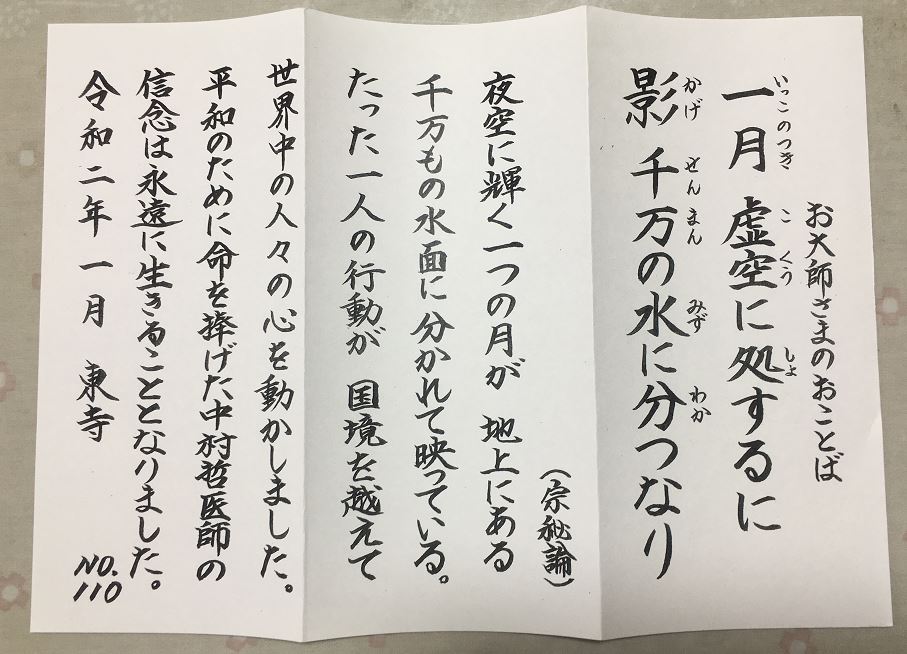 お大師さまのおことば
一月 虚空に処するに
いっこのつき こくう しょ
影 千万の水に分つなり
かげ せんまん みず わか
(宗秘論)
夜空に輝く一つの月が 地上にある
千万もの水面に分かれて映っている。
たった一人の行動が 国境を越えて
世界中の人々の心を動かしました。
平和のために命を捧げた中村哲医師の
信念は永遠に生きることとなりました。
令和二年一月 東寺
NO.110